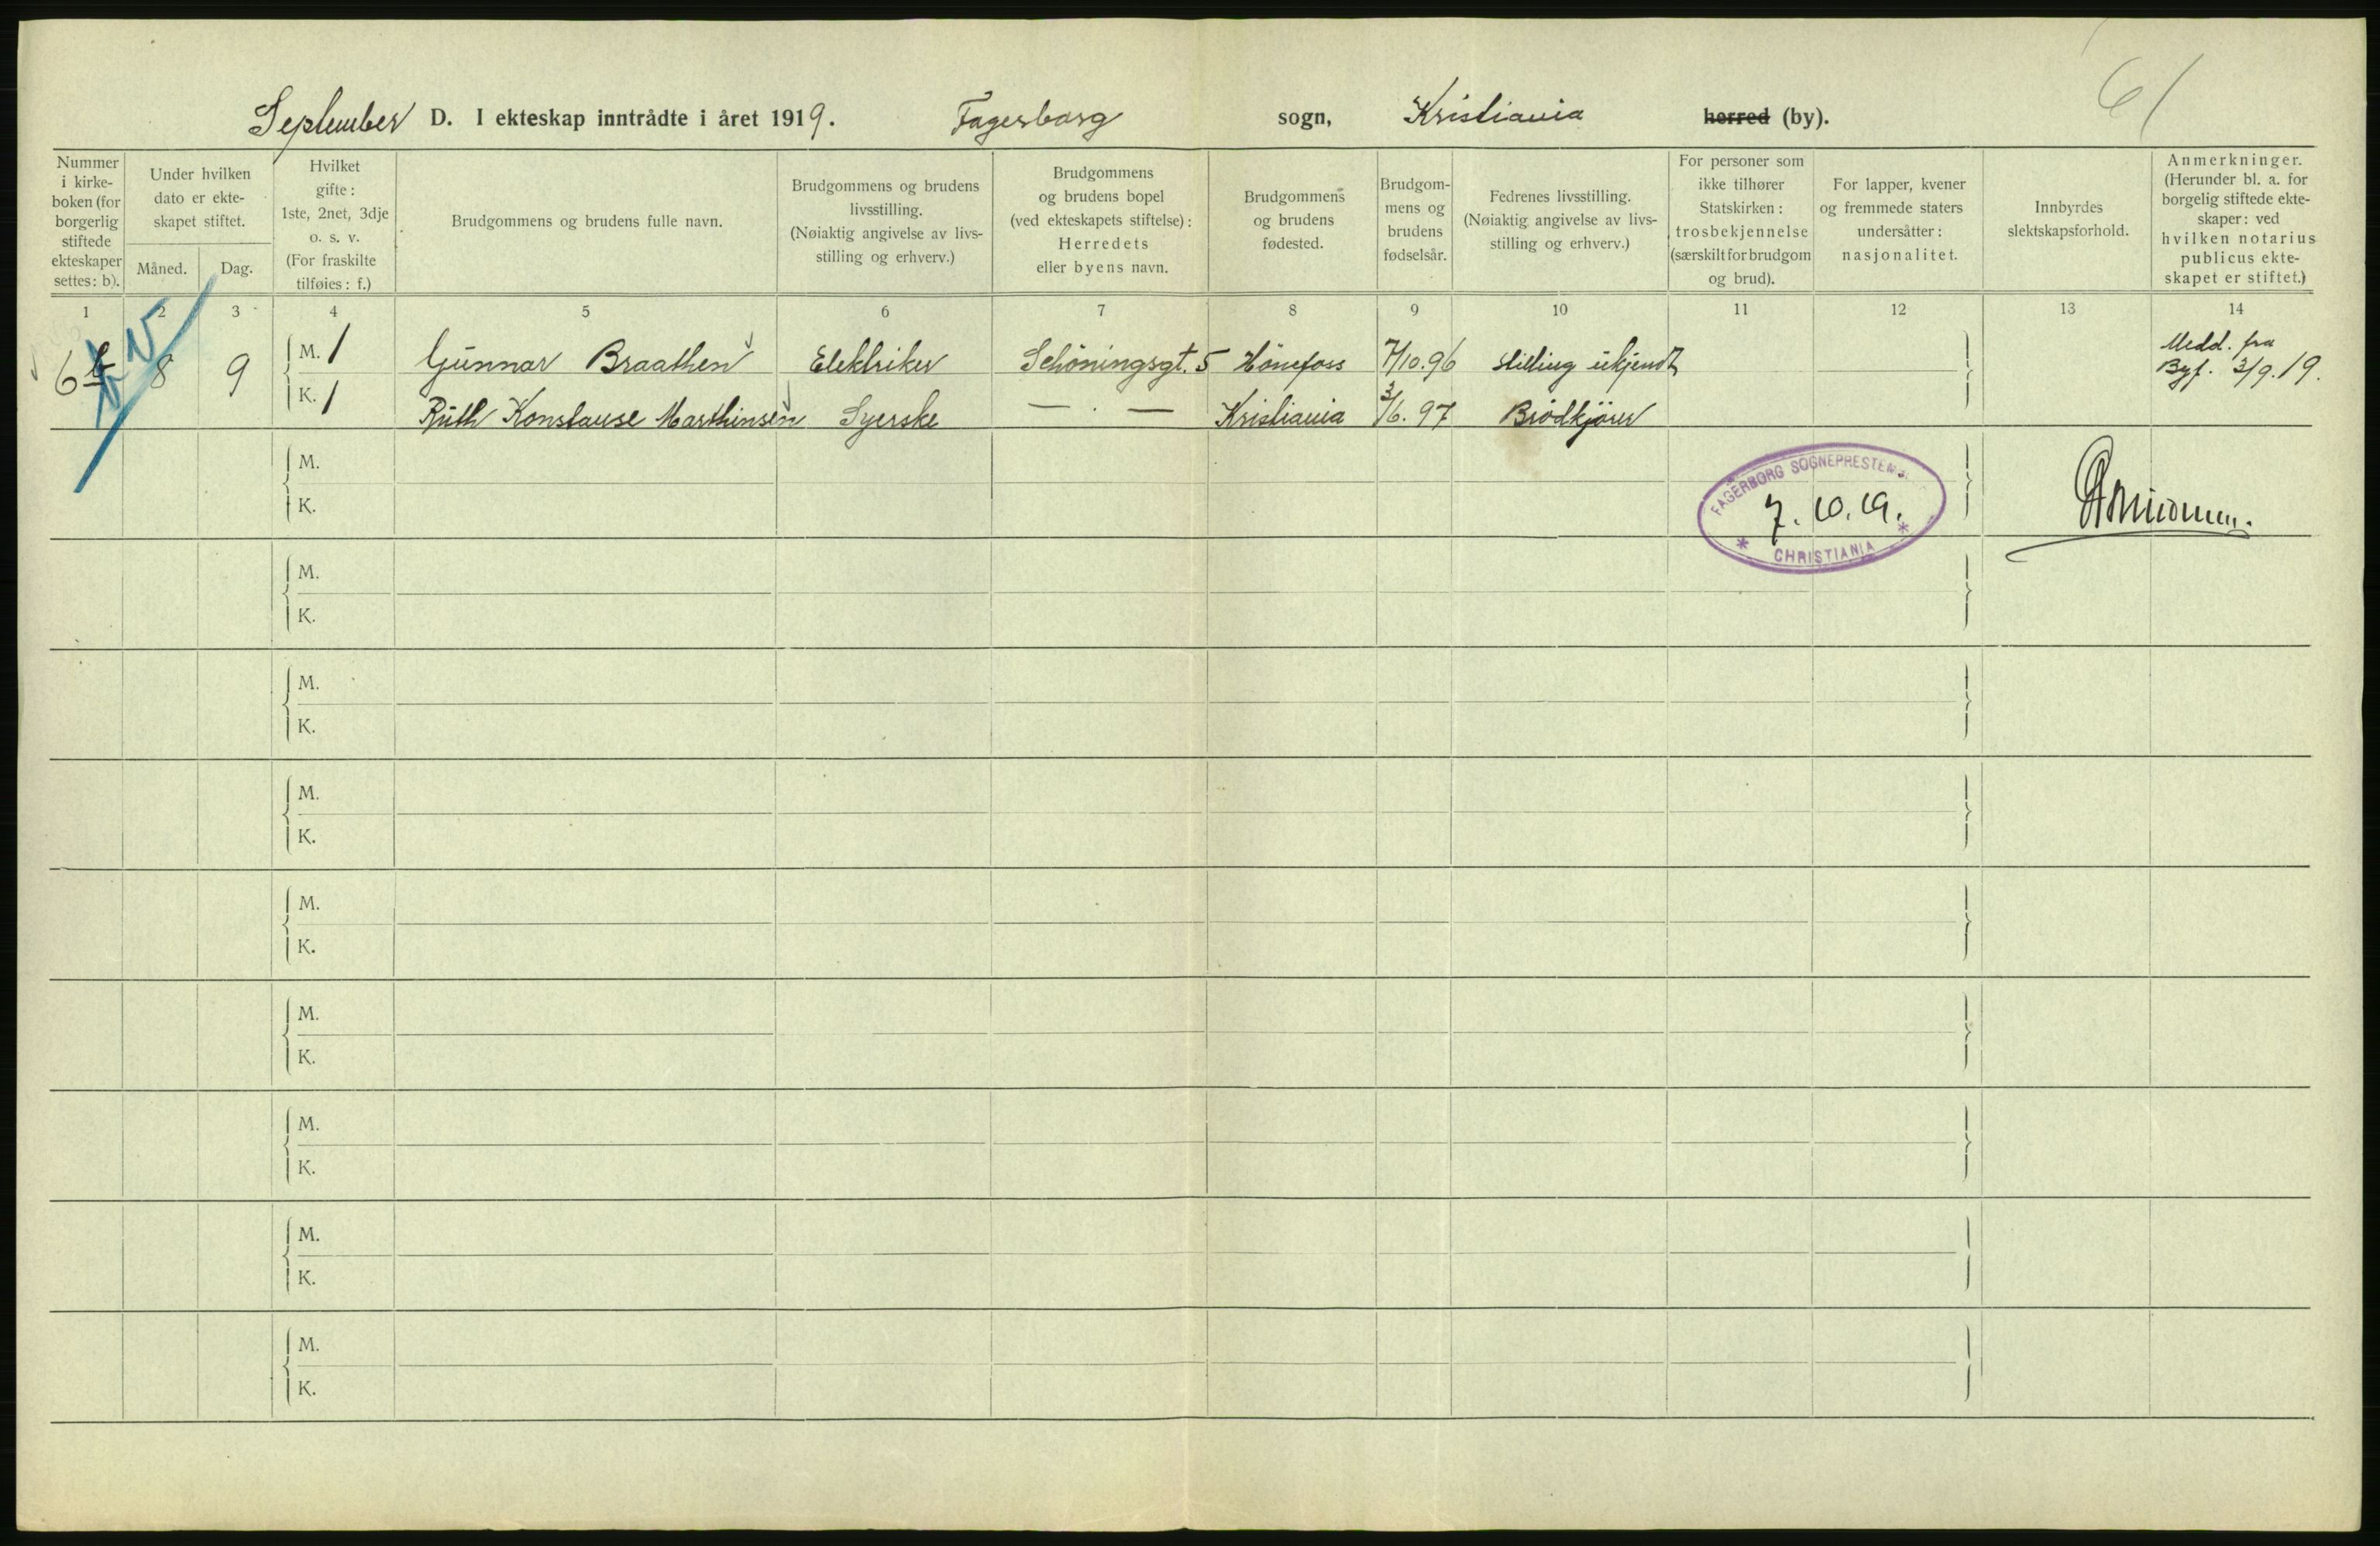 61
September D. I ekteskap inntrådte i året 1919. Fagerborg sogn, Kristiania herred (by).
Nummer
i kirke-
boken (for
borgerlig
stiftede
ekteskaper
settes: b).
Under hvilken
dato er ekte-
skapet stiftet.
Måned. Dag.
Hvilket
gifte:
1ste, 2net, 3dje
o. s. v.
(For fraskilte
tilføies: f.)
Brudgommens og brudens fulle navn.
Brudgommens og brudens
livsstilling.
(Nøiaktig angivelse av livs-
stilling og erhverv.)
Brudgommens
og brudens bopel
(ved ekteskapets stiftelse):
Herredets
eller byens navn.
Brudgommens
og brudens
fødested.
Brudgom-
mens og
brudens
fødselsår.
Fedrenes livsstilling.
(Nøiaktig angivelse av livs-
stilling og erhverv.)
For personer som
ikke tilhører
Statskirken:
trosbekjennelse
(særskilt for brudgom
og brud).
For lapper, kvener
og fremmede staters
undersåtter:
nasjonalitet.
Innbyrdes
slektskapsforhold.
Anmerkninger.
(Herunder bl. a. for
borgelig stiftede ekte-
skaper: ved
hvilken notarius
publicus ekte-
skapet er stiftet.)
1 2 3 4 5 6 7 8 9 10 11 12 13 14
6 b 8 9 M. 1 Gunnar Braathen Elektriker Schöningsgt. 5 Hönefoss 7/10.96 Stilling ukjendt Medd. fra
Byf. 3/9.19.
K. 1 Ruth Konstanse Marthinsen Syerske — . — Kristiania 3/6.97 Brödkjörer
M.
K.
FAGERBORG SOGNEPRESTEN
7.10.19.
CHRISTIANIA
M.
K.
M.
K.
M.
K.
M.
K.
M.
K.
M.
K.
M.
K.
M.
K.